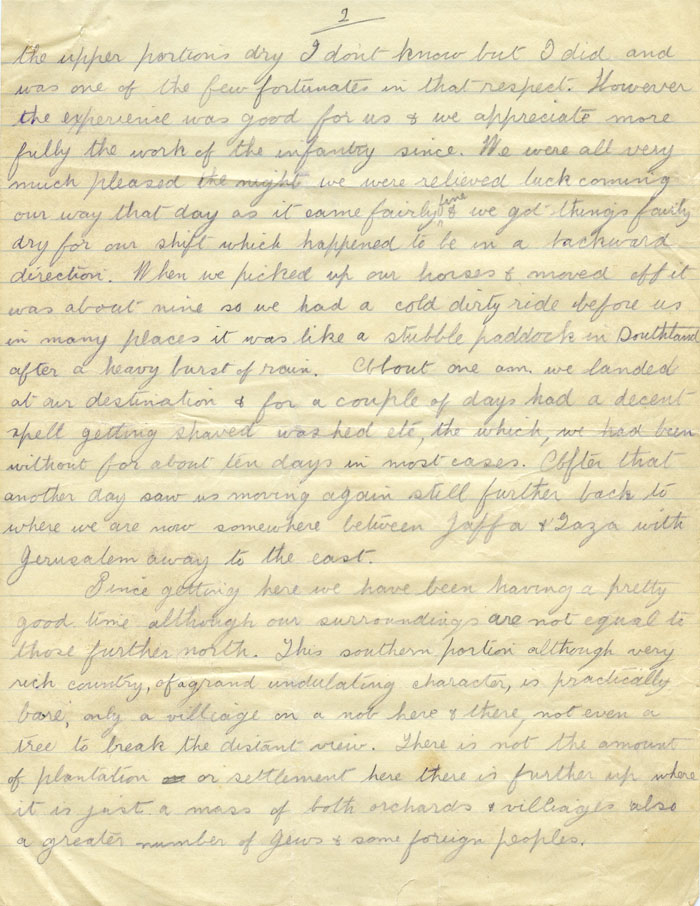 2
the upper portions dry I dont know but I did and
was one of the few fortunates in that respect. However
the experience was good for us & we appreciate more
fully the work of the infantry since. We were all very
much pleased the night we were relieved luck coming
our way that day as it came fairly fine & we got things fairly
dry for our shift which happened to be in a backward
direction. When we picked up our horses & moved off it
was about nine so we had a cold dirty ride before us
in many places it was like a stubble paddock in Southland
after a heavy burst of rain. About one am. we landed
at our destination & for a couple of days had a decent
spell getting shaved washed etc, the which, we had been
without for about ten days in most cases. After that
another day saw us moving again still further back to
where we are now somewhere between Jaffa & Gaza with
Jerusalem away to the east.
Since getting here we have been having a pretty
good time although our surroundings are not equal to
those further north. This southern portion although very
rich country, of a grand undulating character, is practically
bare; only a villiage on a nob here & there, not even a
tree to break the distant view. There is not the amount
of plantation or settlement here there is further up where
it is just a mass of both orchards & villiages also
a greater number of Jews & some foreign peoples.